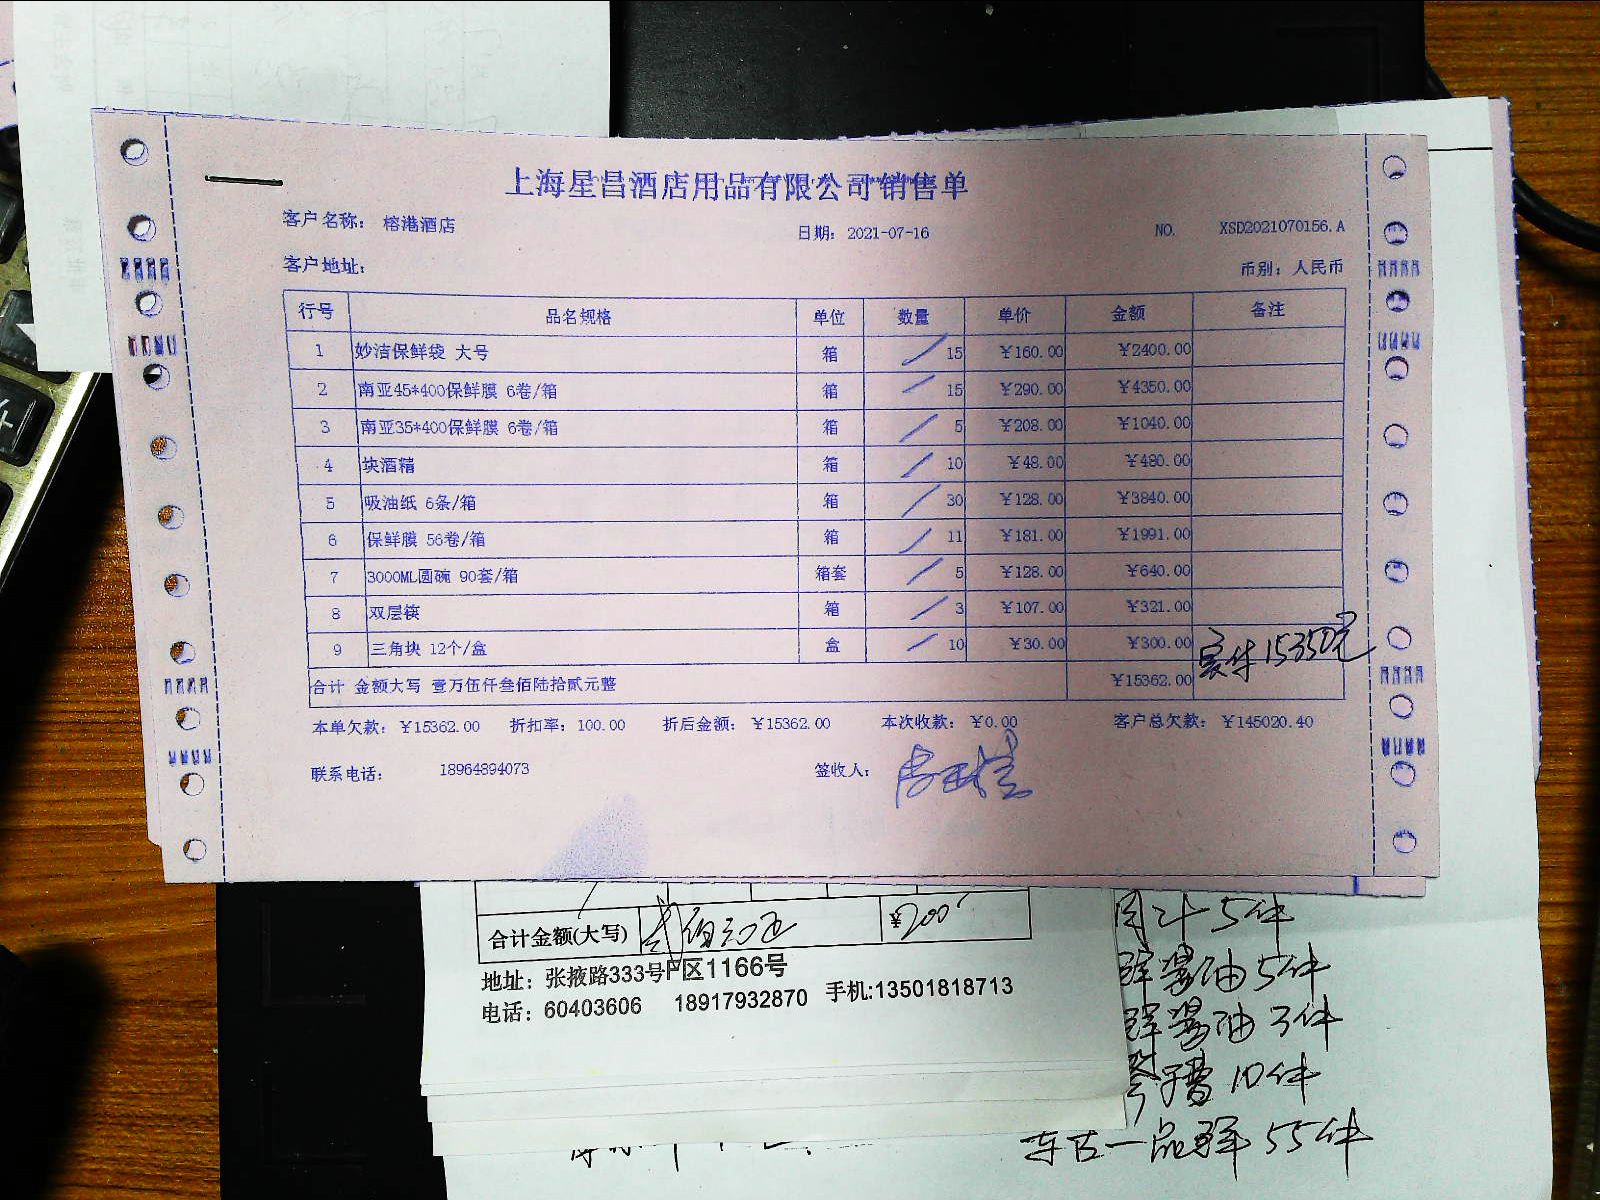 上海星昌酒店用品有限公司销售单
客户名称： 榕港酒店 日期： 2021-07-16 NO. XSD2021070156.A
客户地址： 币别： 人民币
行号 品名规格 单位 数量 单价 金额 备注
1 妙洁保鲜袋 大号 箱 15 ￥160.00 ￥2400.00
2 南亚45*400保鲜膜 6卷/箱 箱 15 ￥290.00 ￥4350.00
3 南亚35*400保鲜膜 6卷/箱 箱 5 ￥208.00 ￥1040.00
4 块酒精 箱 10 ￥48.00 ￥480.00
5 吸油纸 6条/箱 箱 30 ￥128.00 ￥3840.00
6 保鲜膜 56卷/箱 箱 11 ￥181.00 ￥1991.00
7 3000ML圆碗 90套/箱 箱套 5 ￥128.00 ￥640.00
8 双层筷 箱 3 ￥107.00 ￥321.00
9 三角块 12个/盒 盒 10 ￥30.00 ￥300.00
实付15350元
合计 金额大写 壹万伍仟叁佰陆拾贰元整 ￥15362.00
本单欠款： ￥15362.00 折扣率： 100.00 折后金额： ￥15362.00 本次收款： ￥0.00 客户总欠款： ￥145020.40
联系电话： 18964894073 签收人：
合计金额(大写) 贰佰元正 ¥200
地址： 张掖路333号F区1166号
电话： 60403606 18917932870 手机:13501818713
5件
酱油5件
酱油3件
10件
东古一品鲜 55件